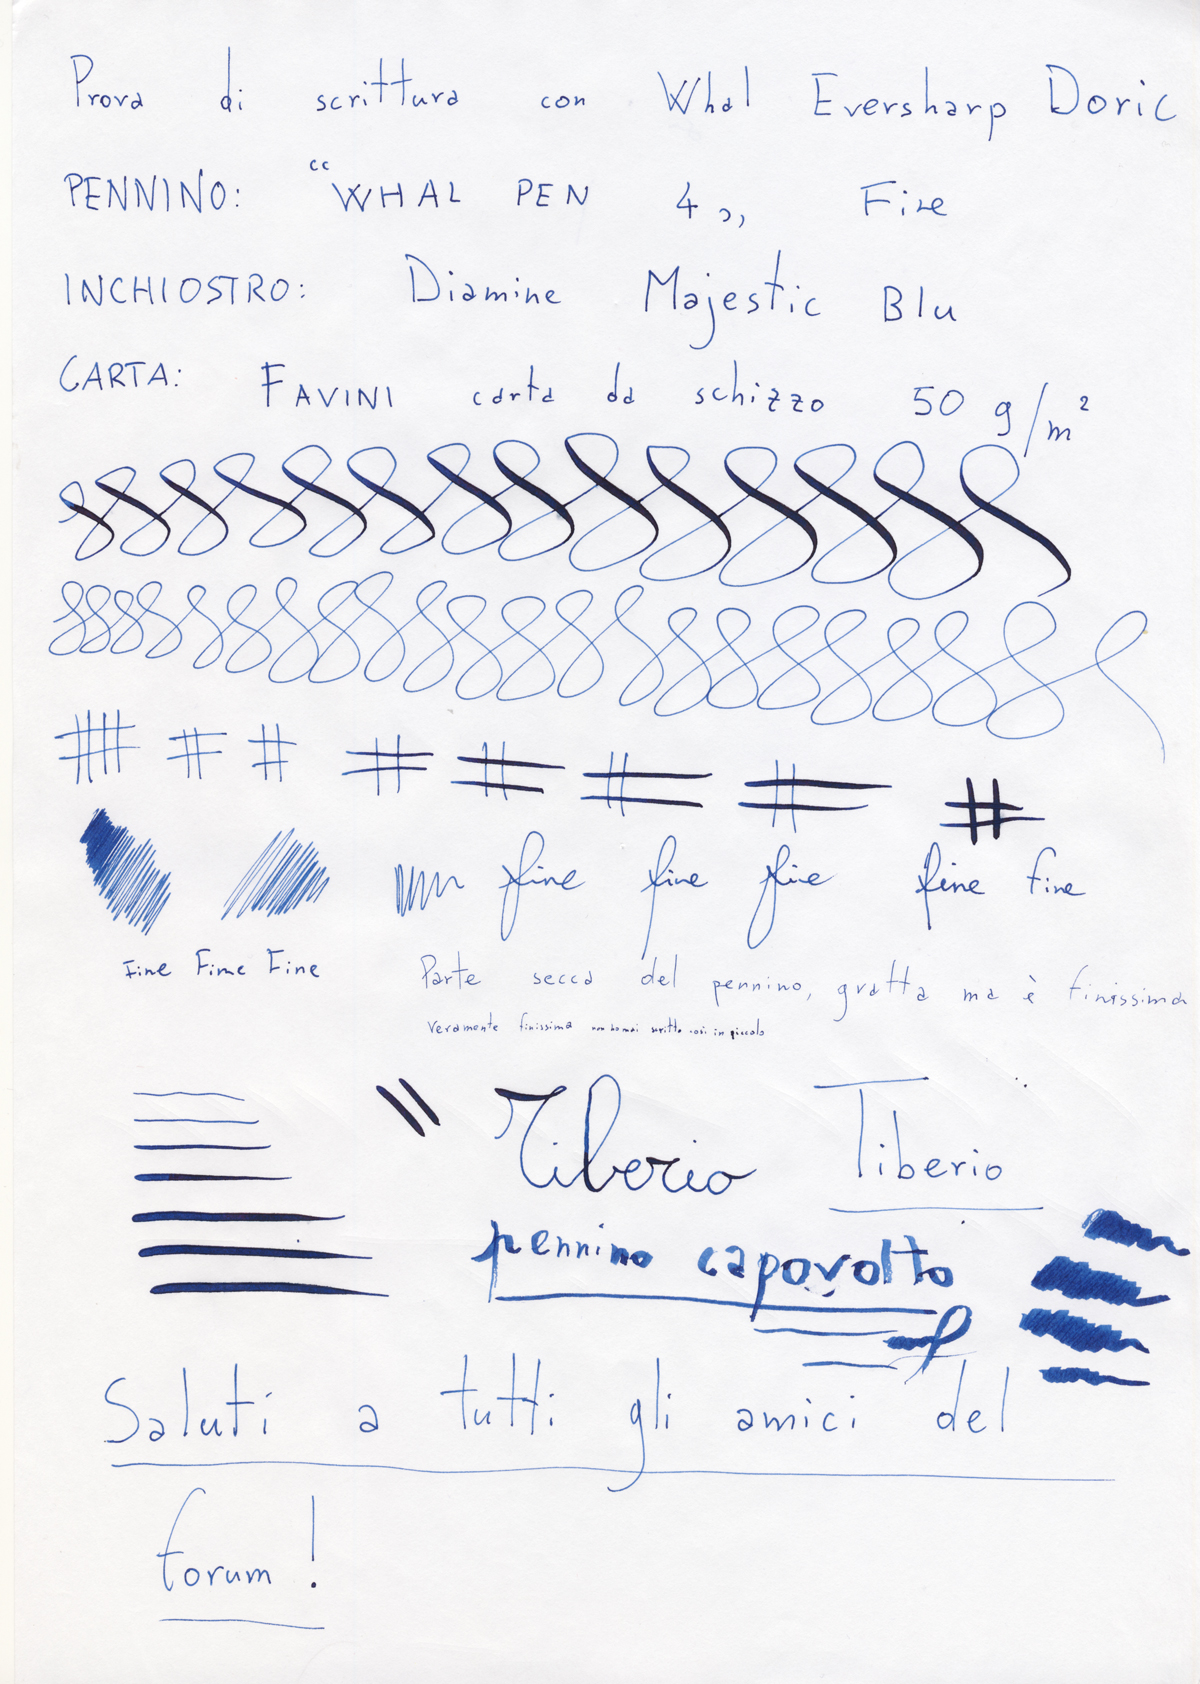 Prova di scrittura con Whal Eversharp Doric
PENNINO: “WHAL PEN 4„ Fine
INCHIOSTRO: Diamine Majestic Blu
CARTA: FAVINI carta da schizzo 50 g/m²
fine fine fine fine fine
Fine Fine Fine
Parte secca del pennino, gratta ma è finissima
Veramente finissima non ho mai scritto così in piccolo
Tiberio Tiberio
pennino capovolto
Saluti a tutti gli amici del
forum!